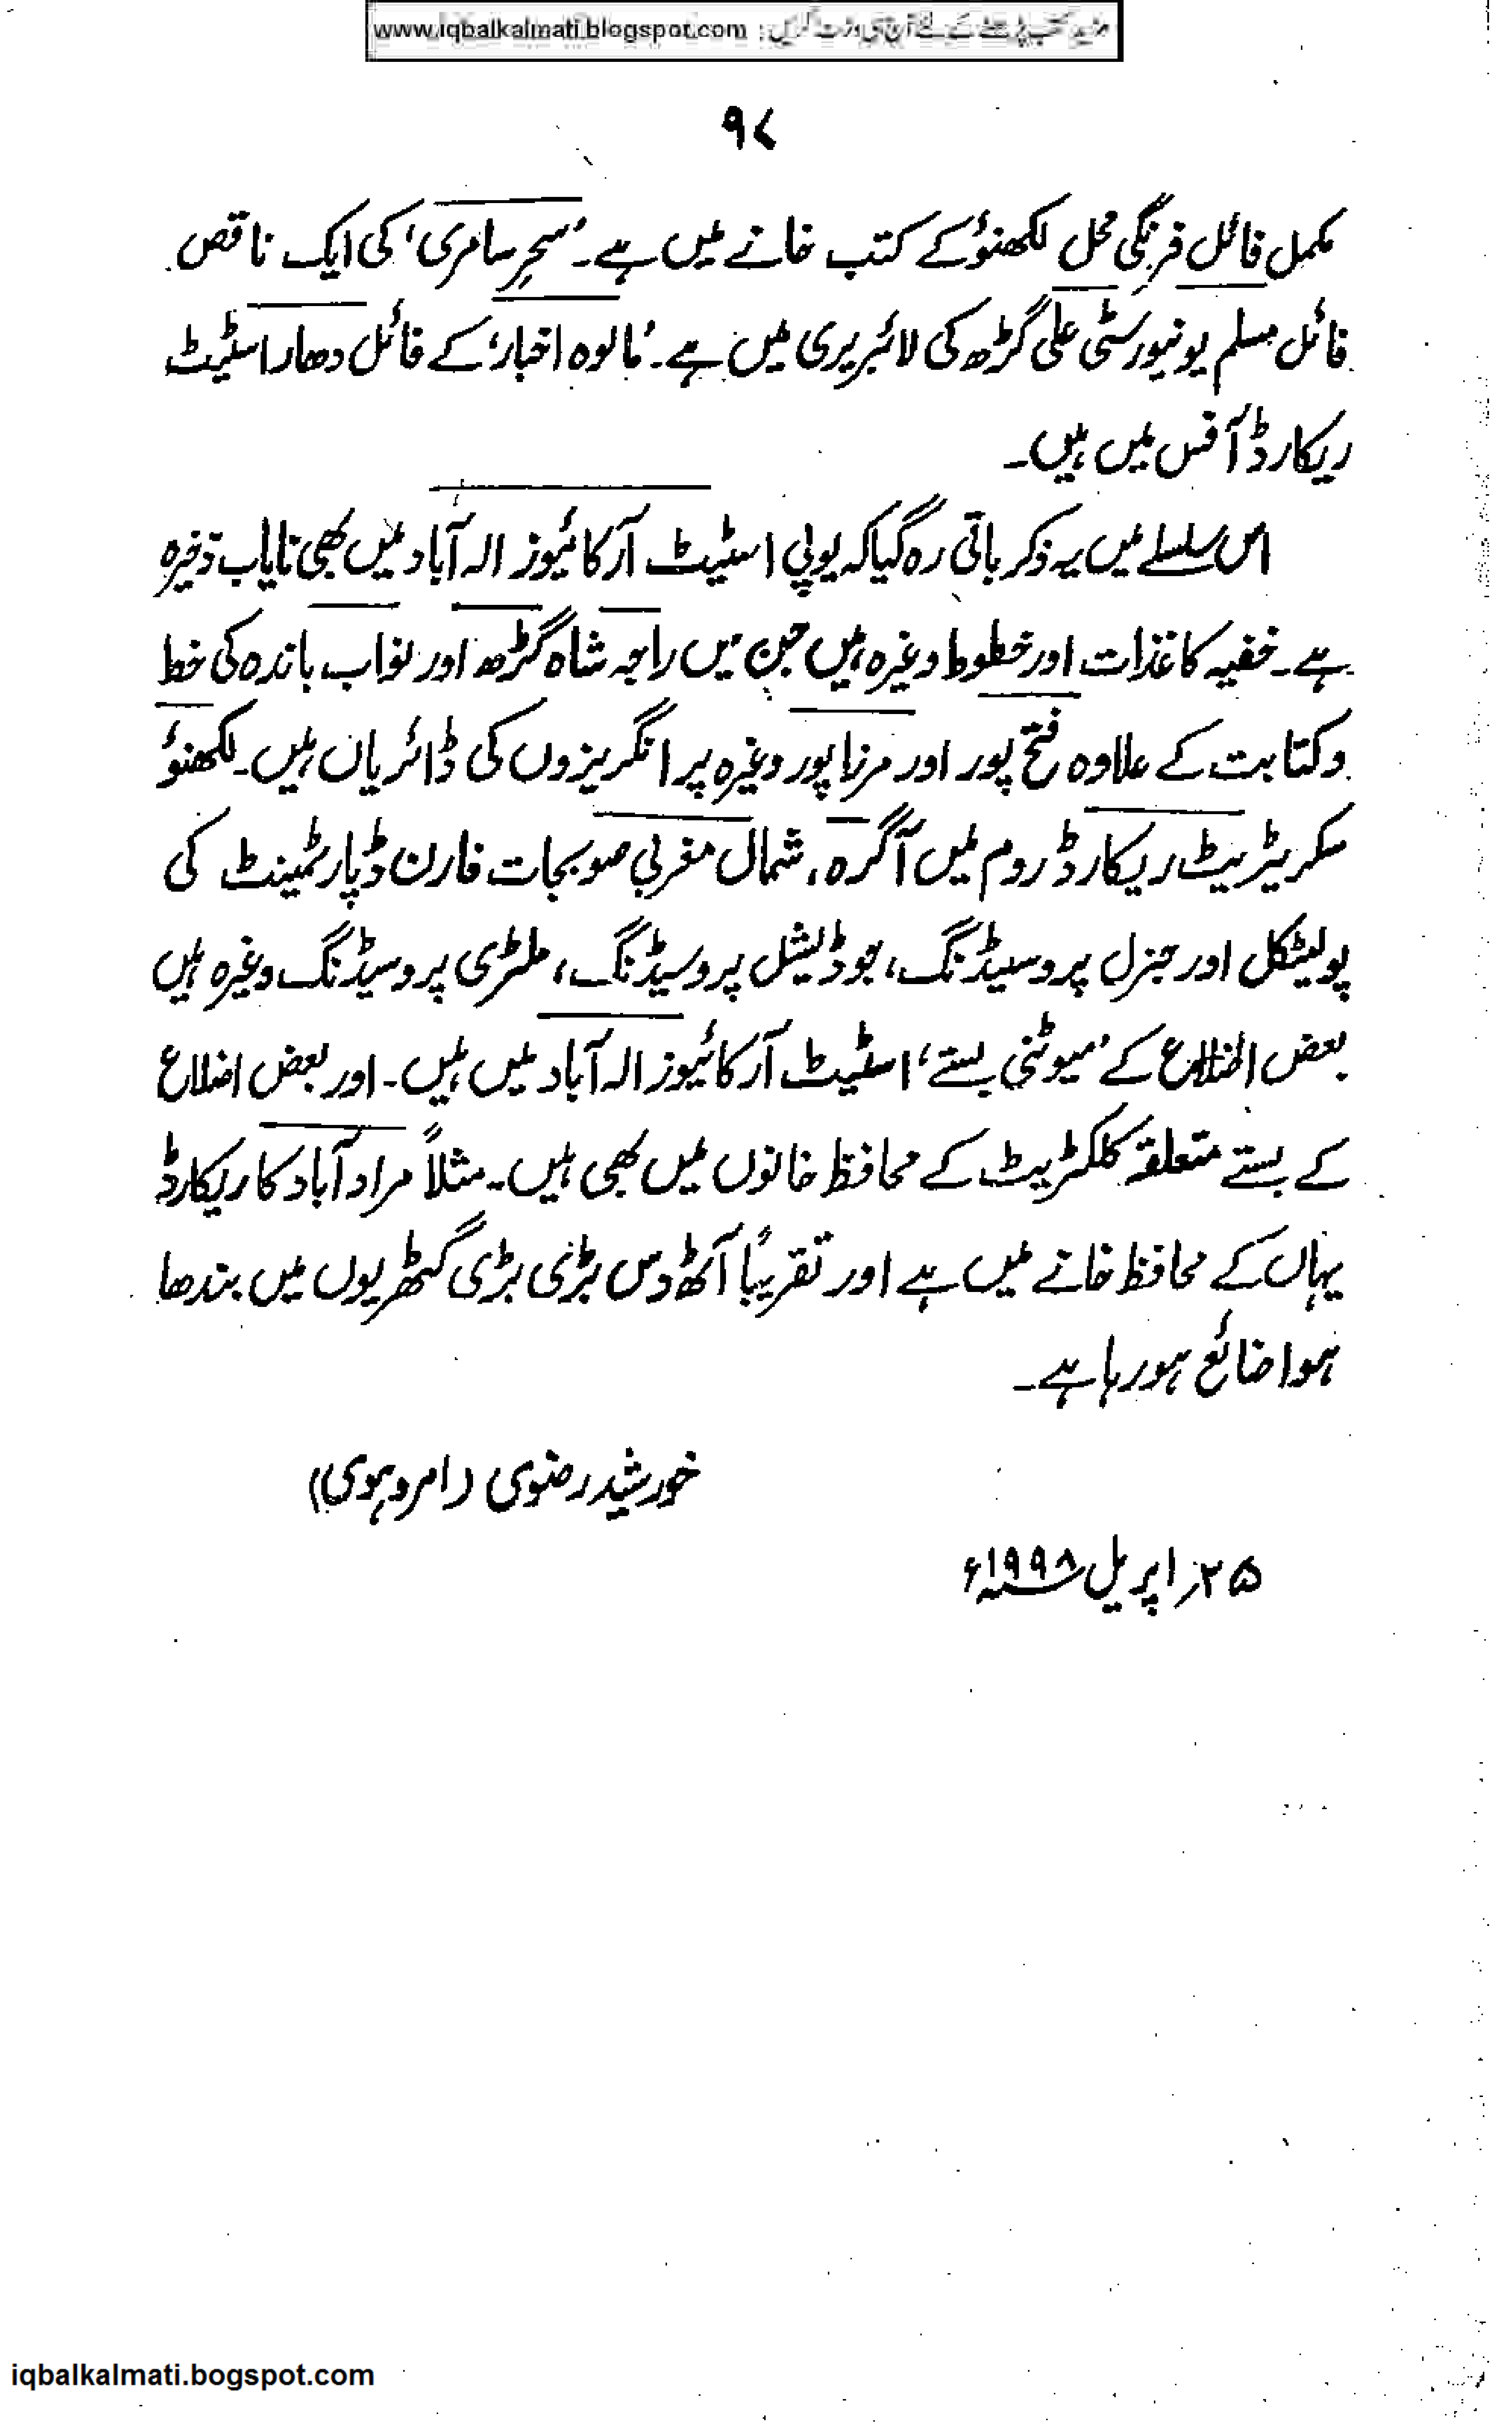 مزید کتب پڑھنے کے لئے آج ہی وزٹ کریں : www.iqbalkalmati.blogspot.com
۹۷
مکمل فائل فرنگی محل لکھنؤ کے کتب خانے میں ہے۔ ’سحرِ سامری‘ کی ایک ناقص
فائل مسلم یونیورسٹی علی گڑھ کی لائبریری میں ہے۔ ’مالوہ اخبار‘ کے فائل دھار اسٹیٹ
ریکارڈ آفس میں ہیں۔
اس سلسلے میں یہ ذکر باقی رہ گیا کہ یوپی اسٹیٹ آرکائیوز الہ آباد میں بھی نایاب ذخیرہ
ہے۔ خفیہ کاغذات اور خطوط وغیرہ ہیں جن میں راجہ شاہ گڑھ اور نواب باندہ کی خط
وکتابت کے علاوہ فتح پور اور مرزا پور وغیرہ پر انگریزوں کی ڈائریاں ہیں۔ لکھنؤ
سکریٹریٹ ریکارڈ روم میں آگرہ، شمال مغربی صوبجات فارن ڈپارٹمینٹ کی
پولیٹکل اور جنرل پروسیڈنگ، جوڈیشل پروسیڈنگ، ملٹری پروسیڈنگ وغیرہ ہیں
بعض اضلاع کے ’میوٹنی بستے‘ اسٹیٹ آرکائیوز الہ آباد میں ہیں۔ اور بعض اضلاع
کے بستے متعلقہ کلکٹریٹ کے محافظ خانوں میں بھی ہیں۔ مثلاً مراد آباد کا ریکارڈ
یہاں کے محافظ خانے میں ہے اور تقریباً آٹھ دس بڑی بڑی گٹھریوں میں بندھا
ہوا ضائع ہو رہا ہے۔
خورشید رضوی (امروہوی)
۲۵؍ اپریل ۱۹۹۸ء
iqbalkalmati.bogspot.com